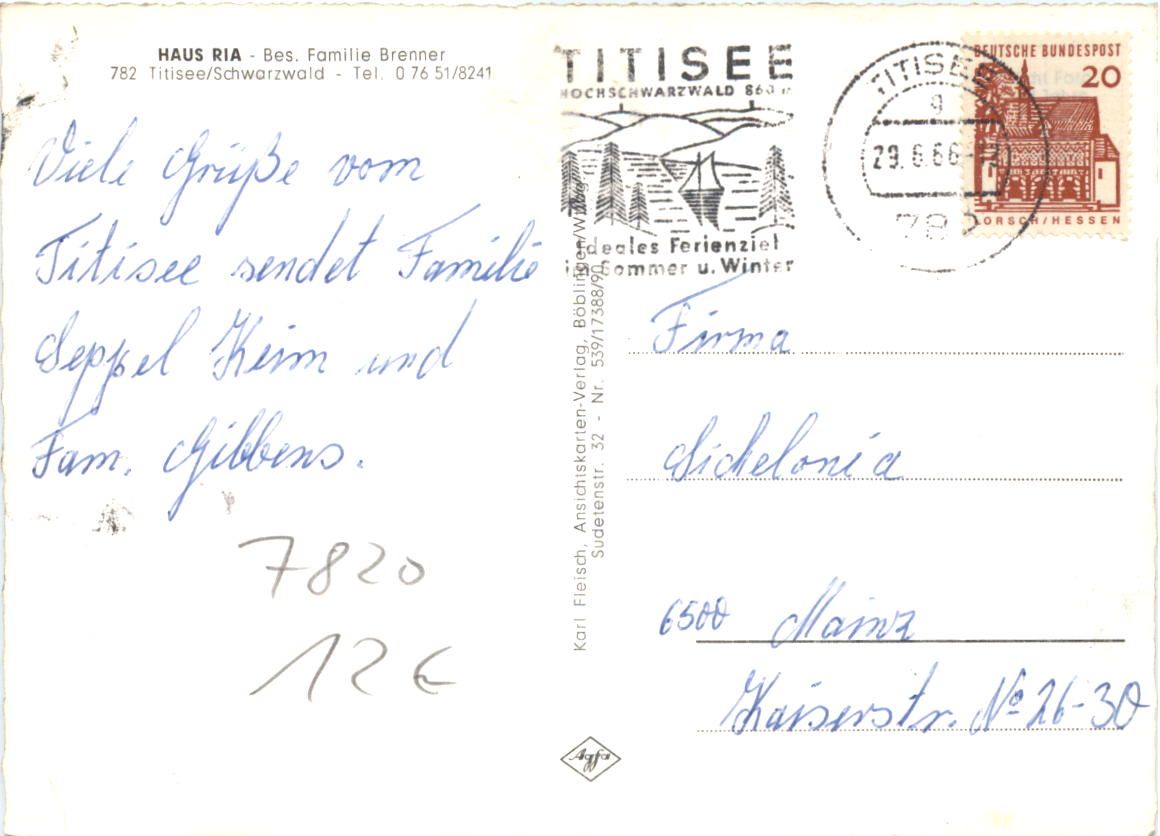 HAUS RIA - Bes. Familie Brenner
782 Titisee/Schwarzwald - Tel. 0 76 51/8241
Viele Grüße vom
Titisee sendet Familie
Seppel Keim und
Fam. Gibbens.
7820
12 €
Karl Fleisch, Ansichtskarten-Verlag, Böblingen/Württ.
Sudetenstr. 32 - Nr. 539/17388/90
TITISEE
HOCHSCHWARZWALD 860 m
ideales Ferienziel
im Sommer u. Winter
TITISEE
a
29.6.66
782
DEUTSCHE BUNDESPOST
20
LORSCH/HESSEN
Firma
Sichelonia
6500 Mainz
Kaiserstr. No 26-30
Agfa